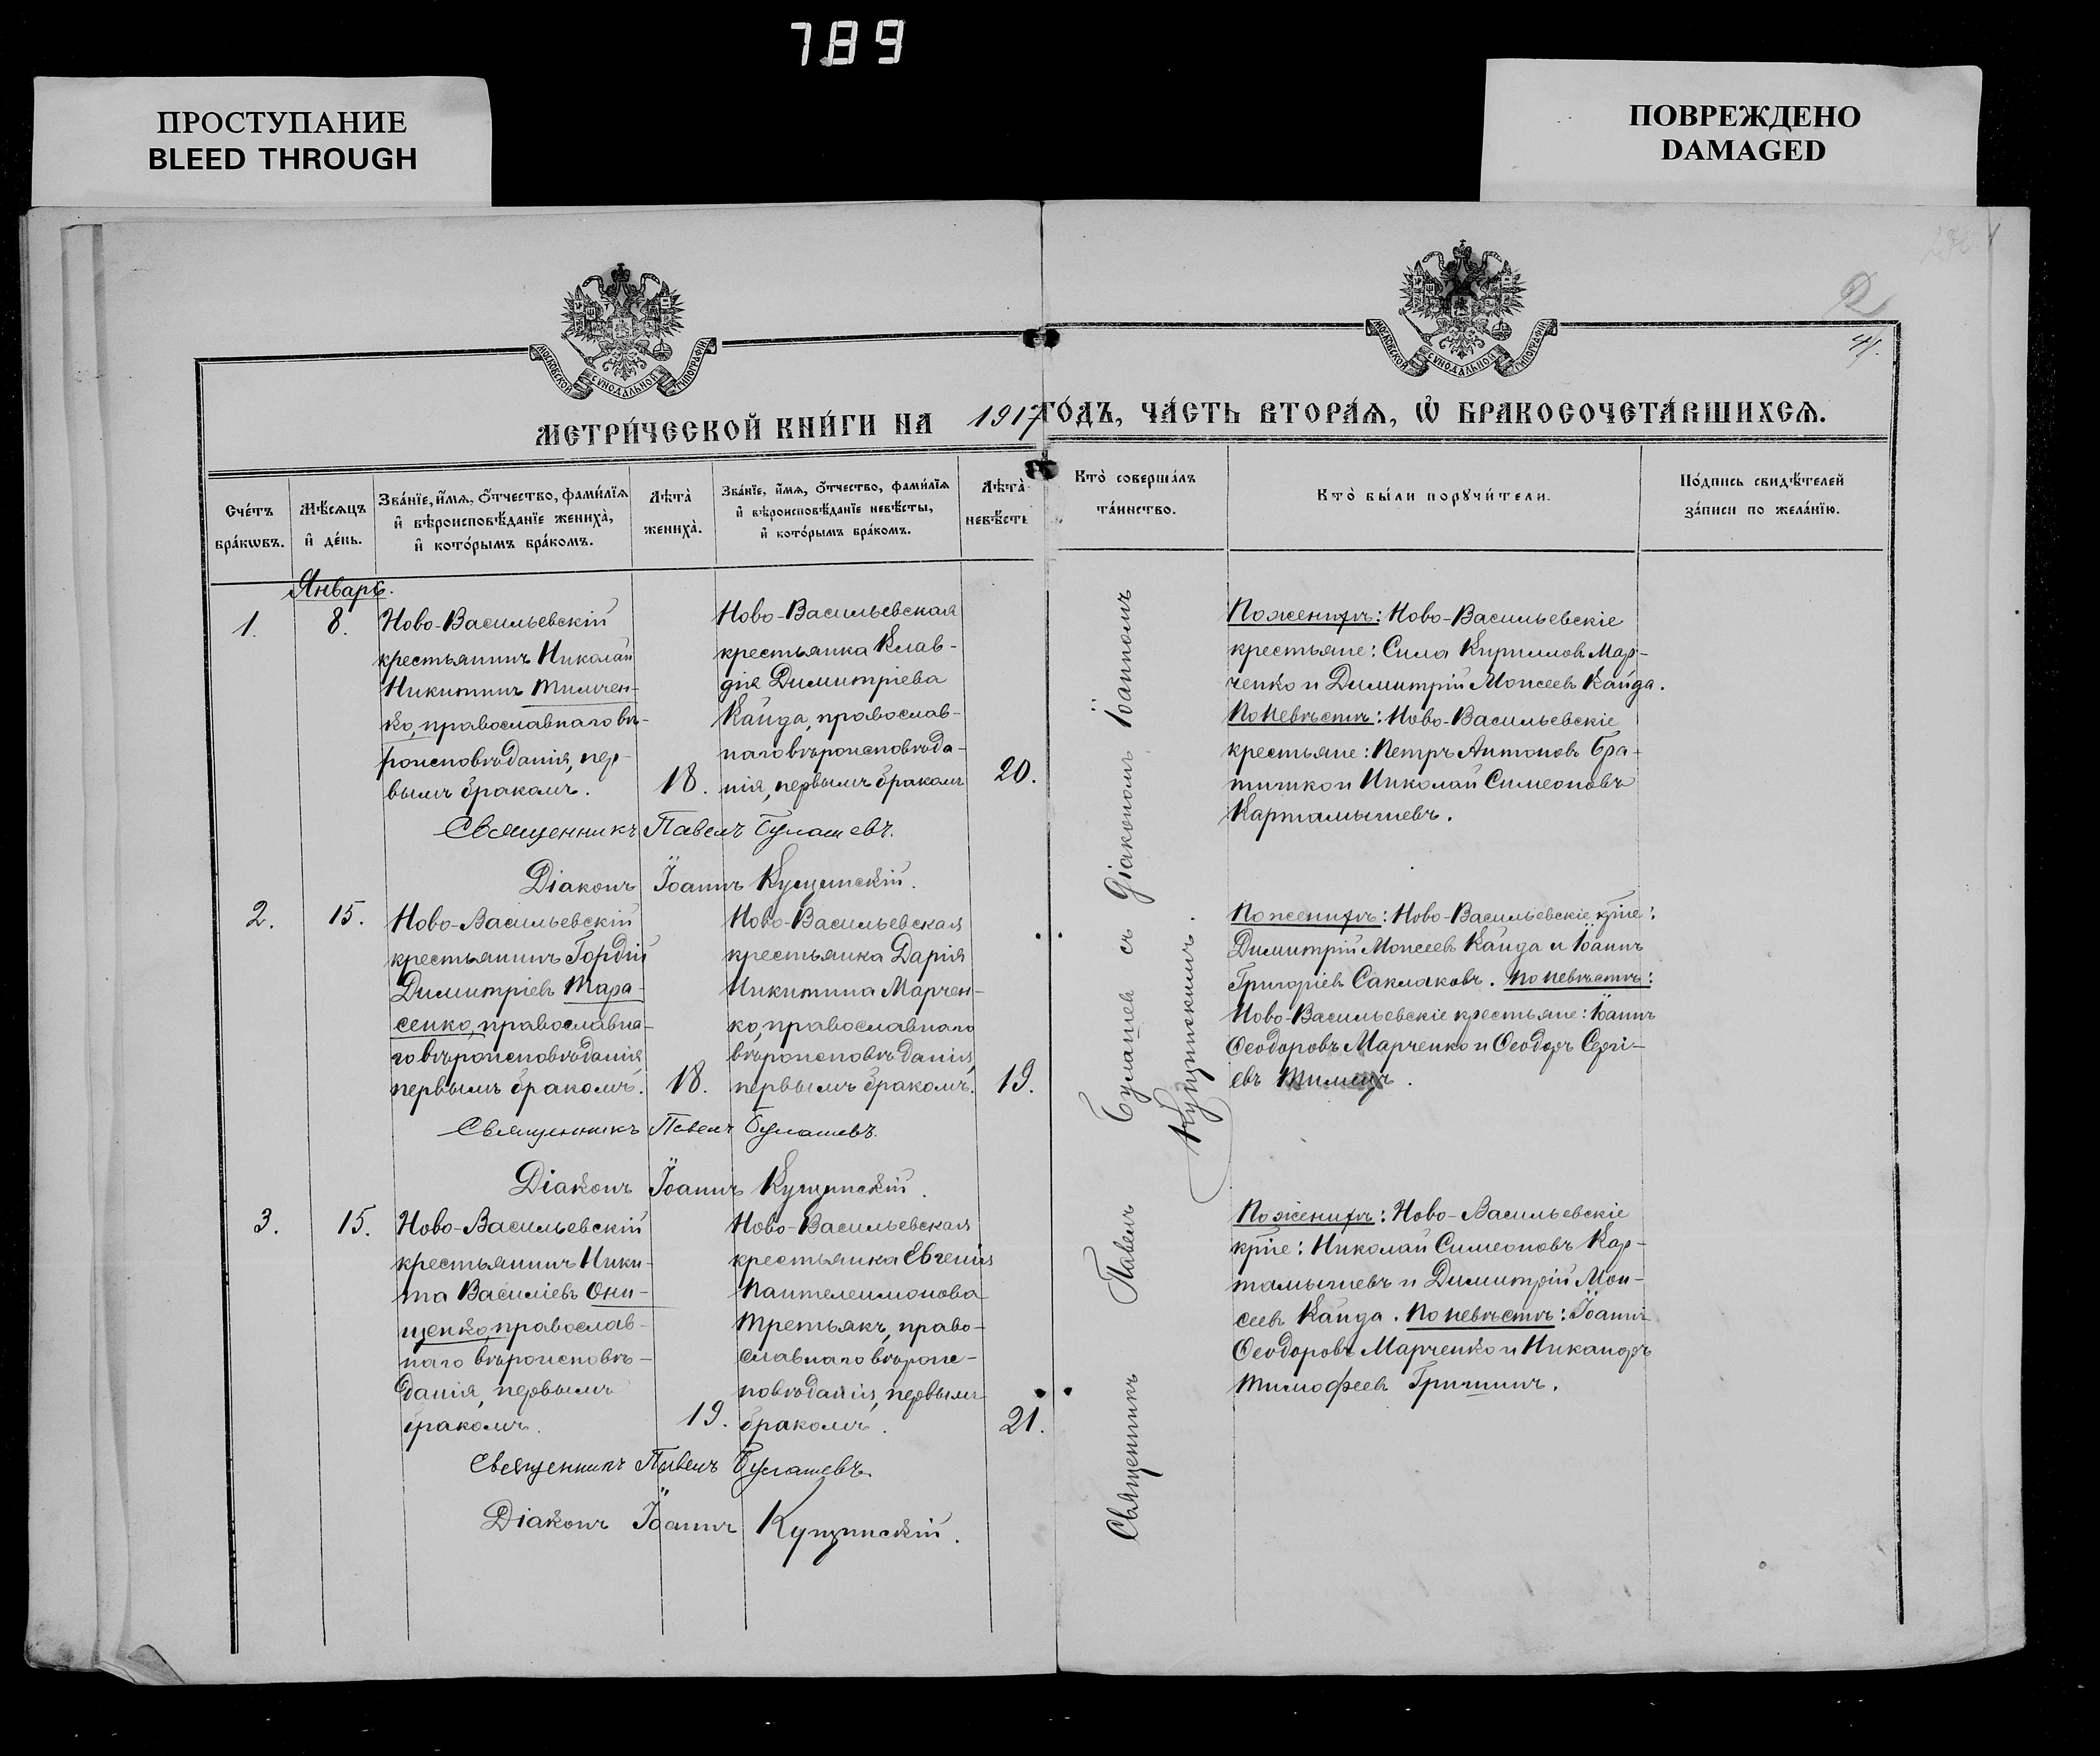 789
ПРОСТУПАНИЕ
BLEED THROUGH
ПОВРЕЖДЕНО
DAMAGED
МОСКОВСКОЙ СѴНОДАЛЬНОЙ ТИПОГРАФІИ
МОСКОВСКОЙ СѴНОДАЛЬНОЙ ТИПОГРАФІИ
2
41.
МЕТРИ́ЧЕСКОЙ КНИ́ГИ НА 1917 ГО́ДЪ, ЧА́СТЬ ВТОРА́Ѧ, Ѡ҆ БРАКОСОЧЕТА́ВШИХСѦ.
Сче́тъ
бра́кѡвъ.
Мѣ́сѧцъ
и҆ де́нь.
Зва́нїе, и҆́мѧ, ѻ҆́тчество, фами́лїѧ
и҆ вѣроисповѣ́данїе жениха̀,
и҆ кото́рымъ бра́комъ.
Лѣта̀
жениха̀.
Зва́нїе, и҆́мѧ, ѻ҆́тчество, фами́лїѧ
и҆ вѣроисповѣ́данїе невѣ́сты,
и҆ кото́рымъ бра́комъ.
Лѣта̀
невѣ́сты
Кто̀ соверша́лъ
та́инство.
Кто̀ бы́ли порꙋчи́тели.
По́дпись свидѣ́телей
за́писи по жела́нїю.
Январь.
1.
8.
Ново-Васильевскій
крестьянинъ Николай
Никитинъ Тимчен-
ко, православнаго вѣ-
роисповѣданія, пер-
вымъ бракомъ.
18.
Ново-Васильевская
крестьянка Клав-
дія Димитріева
Кайда, православ-
наго вѣроисповѣда-
нія, первымъ бракомъ
20.
Священникъ Павелъ Булашевъ.
Діаконъ Іоаннъ Кущинскій.
По женихѣ: Ново-Васильевскіе
крестьяне: Сила Кирилловъ Мар-
ченко и Димитрій Моисеевъ Кайда.
По невѣстѣ: Ново-Васильевскіе
крестьяне: Петръ Антоновъ Бра-
тишко и Николай Симеоновъ
Картамышевъ.
2.
15.
Ново-Васильевскій
крестьянинъ Гордій
Димитріевъ Тара-
сенко, православна-
го вѣроисповѣданія
первымъ бракомъ.
18.
Ново-Васильевская
крестьянка Дарія
Никитина Марчен-
ко, православнаго
вѣроисповѣданія,
первымъ бракомъ.
19.
Священникъ Павелъ Булашевъ.
Діаконъ Іоаннъ Кущинскій.
По женихѣ: Ново-Васильевскіе кр-не:
Димитрій Моисеевъ Кайда и Іоаннъ
Григоріевъ Саклаковъ. По невѣстѣ:
Ново-Васильевскіе крестьяне: Іоаннъ
Ѳеодоровъ Марченко и Ѳеодоръ Сергі-
евъ
3.
15.
Ново-Васильевскій
крестьянинъ Ники-
та Василіевъ Они-
щенко, православ-
наго вѣроисповѣ-
данія, первымъ
бракомъ.
19.
Ново-Васильевская
крестьянка Евгенія
Пантелеимонова
Третьякъ, право-
славнаго вѣроис-
повѣданія, первымъ
бракомъ.
21.
Священникъ Павелъ Булашевъ.
Діаконъ Іоаннъ Кущинскій.
По женихѣ: Ново-Васильевскіе
кр-не: Николай Симеоновъ Кар-
тамышевъ и Димитрій Мои-
сеевъ Кайда. По невѣстѣ: Іоаннъ
Ѳеодоровъ Марченко и Никаноръ
Тимофеевъ Гришинъ.
Священникъ Павелъ Булашев съ Діакономъ Іоанномъ
Кущинскимъ.